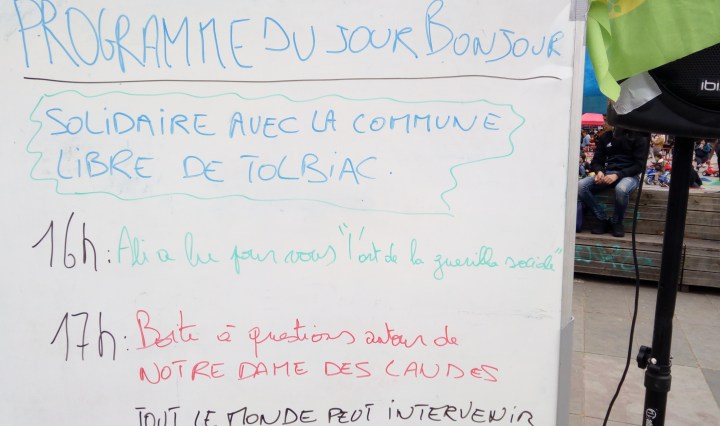 PROGRAMME DU JOUR BONJOUR
SOLIDAIRE AVEC LA COMMUNE
LIBRE DE TOLBIAC.
16h: Ali a lu pour vous "l'art de la guerilla sociale"
17h: Boite à questions autour de
NOTRE DAME DES LANDES
TOUT LE MONDE PEUT INTERVENIR
ibi